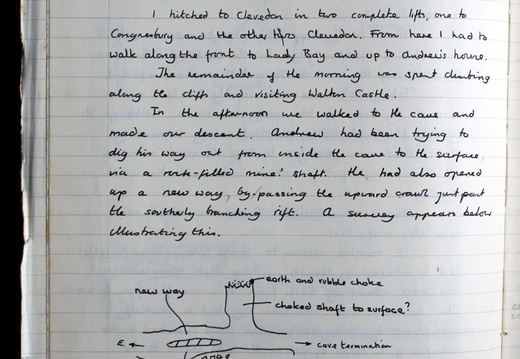 I hitched to Clevedon in two complete lifts, one to
Congresbury and the other to Clevedon. From here I had to
walk along the front to Lady Bay and up to Andrew's house.
The remainder of the morning was spent climbing
along the cliffs and visiting Walton Castle.
In the afternoon we walked to the cave and
made our descent. Andrew had been trying to
dig his way out from inside the cave to the surface,
via a rock-filled mine? shaft. He had also opened
up a new way, by-passing the upward crawl just past
the southerly branching rift. A survey appears below
illustrating this.
earth and rubble choke
new way
choked shaft to surface?
E
cave termination